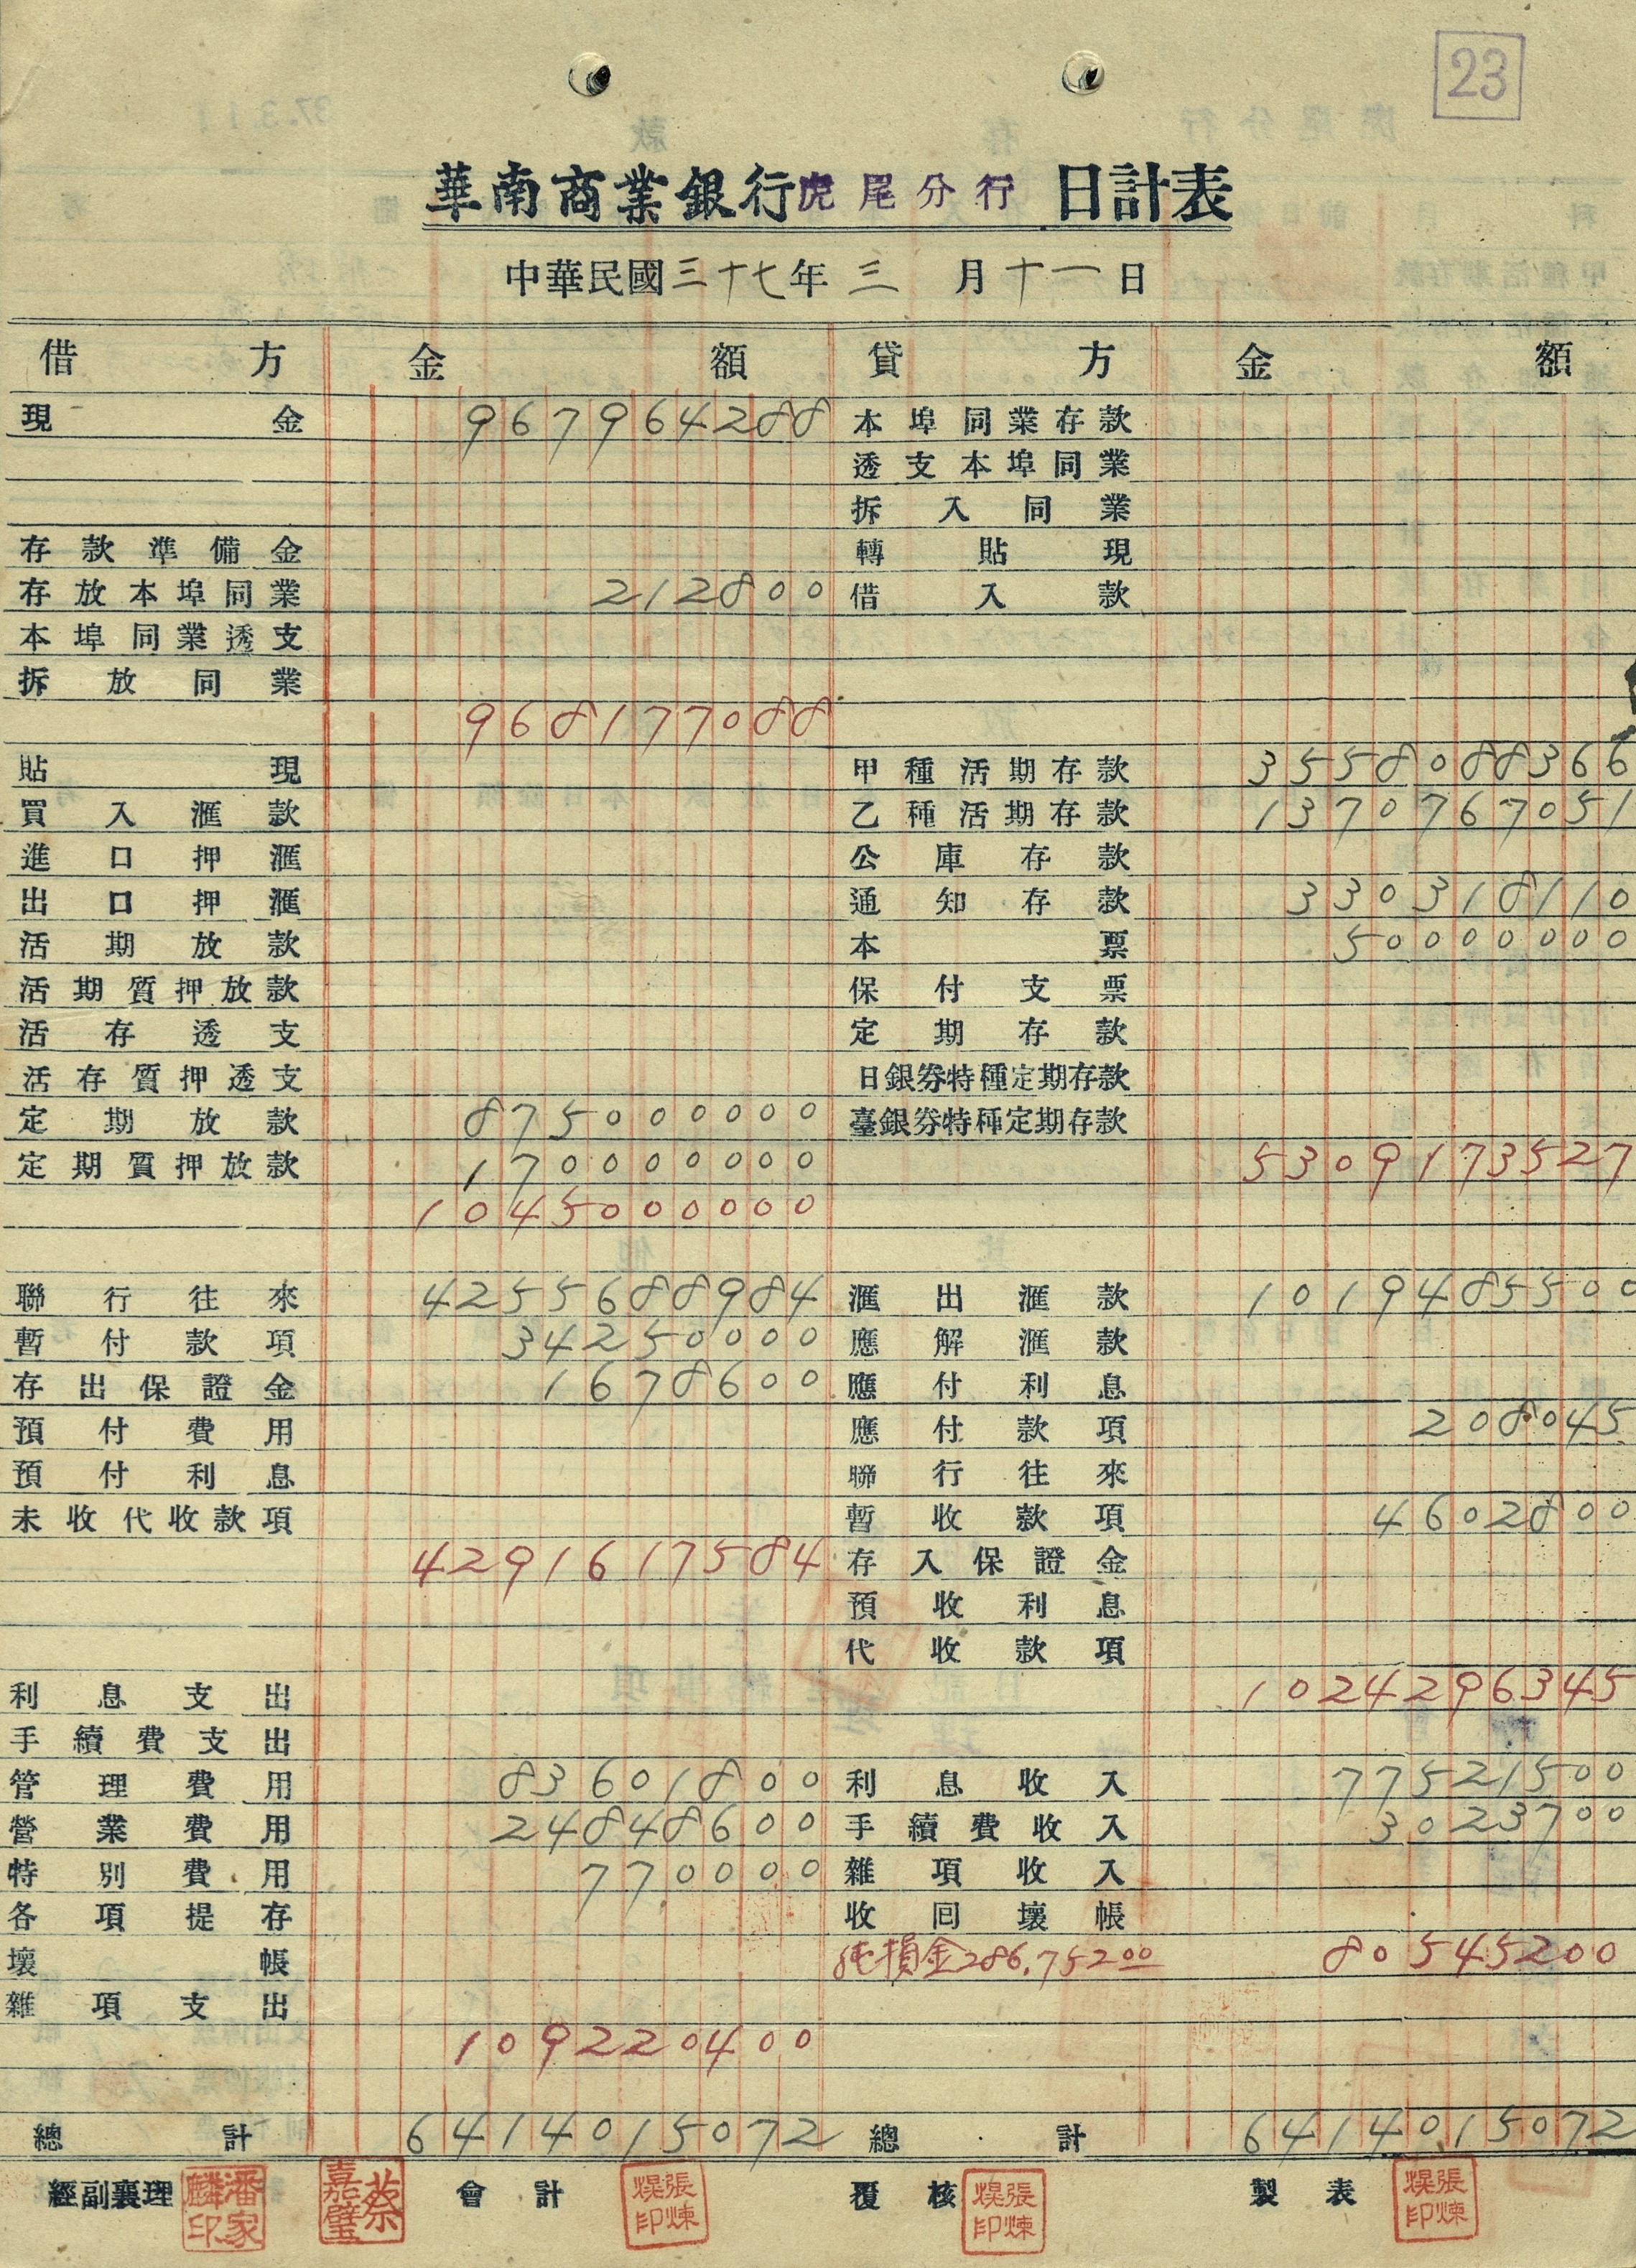 23
華南商業銀行虎尾分行 日計表
中華民國三十七年三月十一日
借方 金額 貸方 金額
現金 967964288 本埠同業存款
透支本埠同業
拆入同業
存款準備金 轉貼現
存放本埠同業 212800 借入款
本埠同業透支
拆放同業
968177088
貼現 甲種活期存款 3558088366
買入滙款 乙種活期存款 1370767051
進口押滙 公庫存款
出口押滙 通知存款 330318110
活期放款 本票 50000000
活期質押放款 保付支票
活存透支 定期存款
活存質押透支 日銀券特種定期存款
定期放款 875000000 臺銀券特種定期存款
定期質押放款 170000000 5309173527
1045000000
聯行往來 4255688984 滙出滙款 1019485500
暫付款項 34250000 應解滙款
存出保證金 1678600 應付利息
預付費用 應付款項 208045
預付利息 聯行往來
未收代收款項 暫收款項 4602800
4291617584 存入保證金
預收利息
代收款項
利息支出 1024296345
手續費支出
管理費用 83601800 利息收入 77521500
營業費用 24848600 手續費收入 3023700
特別費用 770000 雜項收入
各項提存 收回壞帳
壞帳 純損金286,75200 80545200
雜項支出
109220400
總計 6414015072 總計 6414015072
經副襄理 潘家麟印 蔡嘉璧 會計 張煉焜印 覆核 張煉焜印 製表 張煉焜印